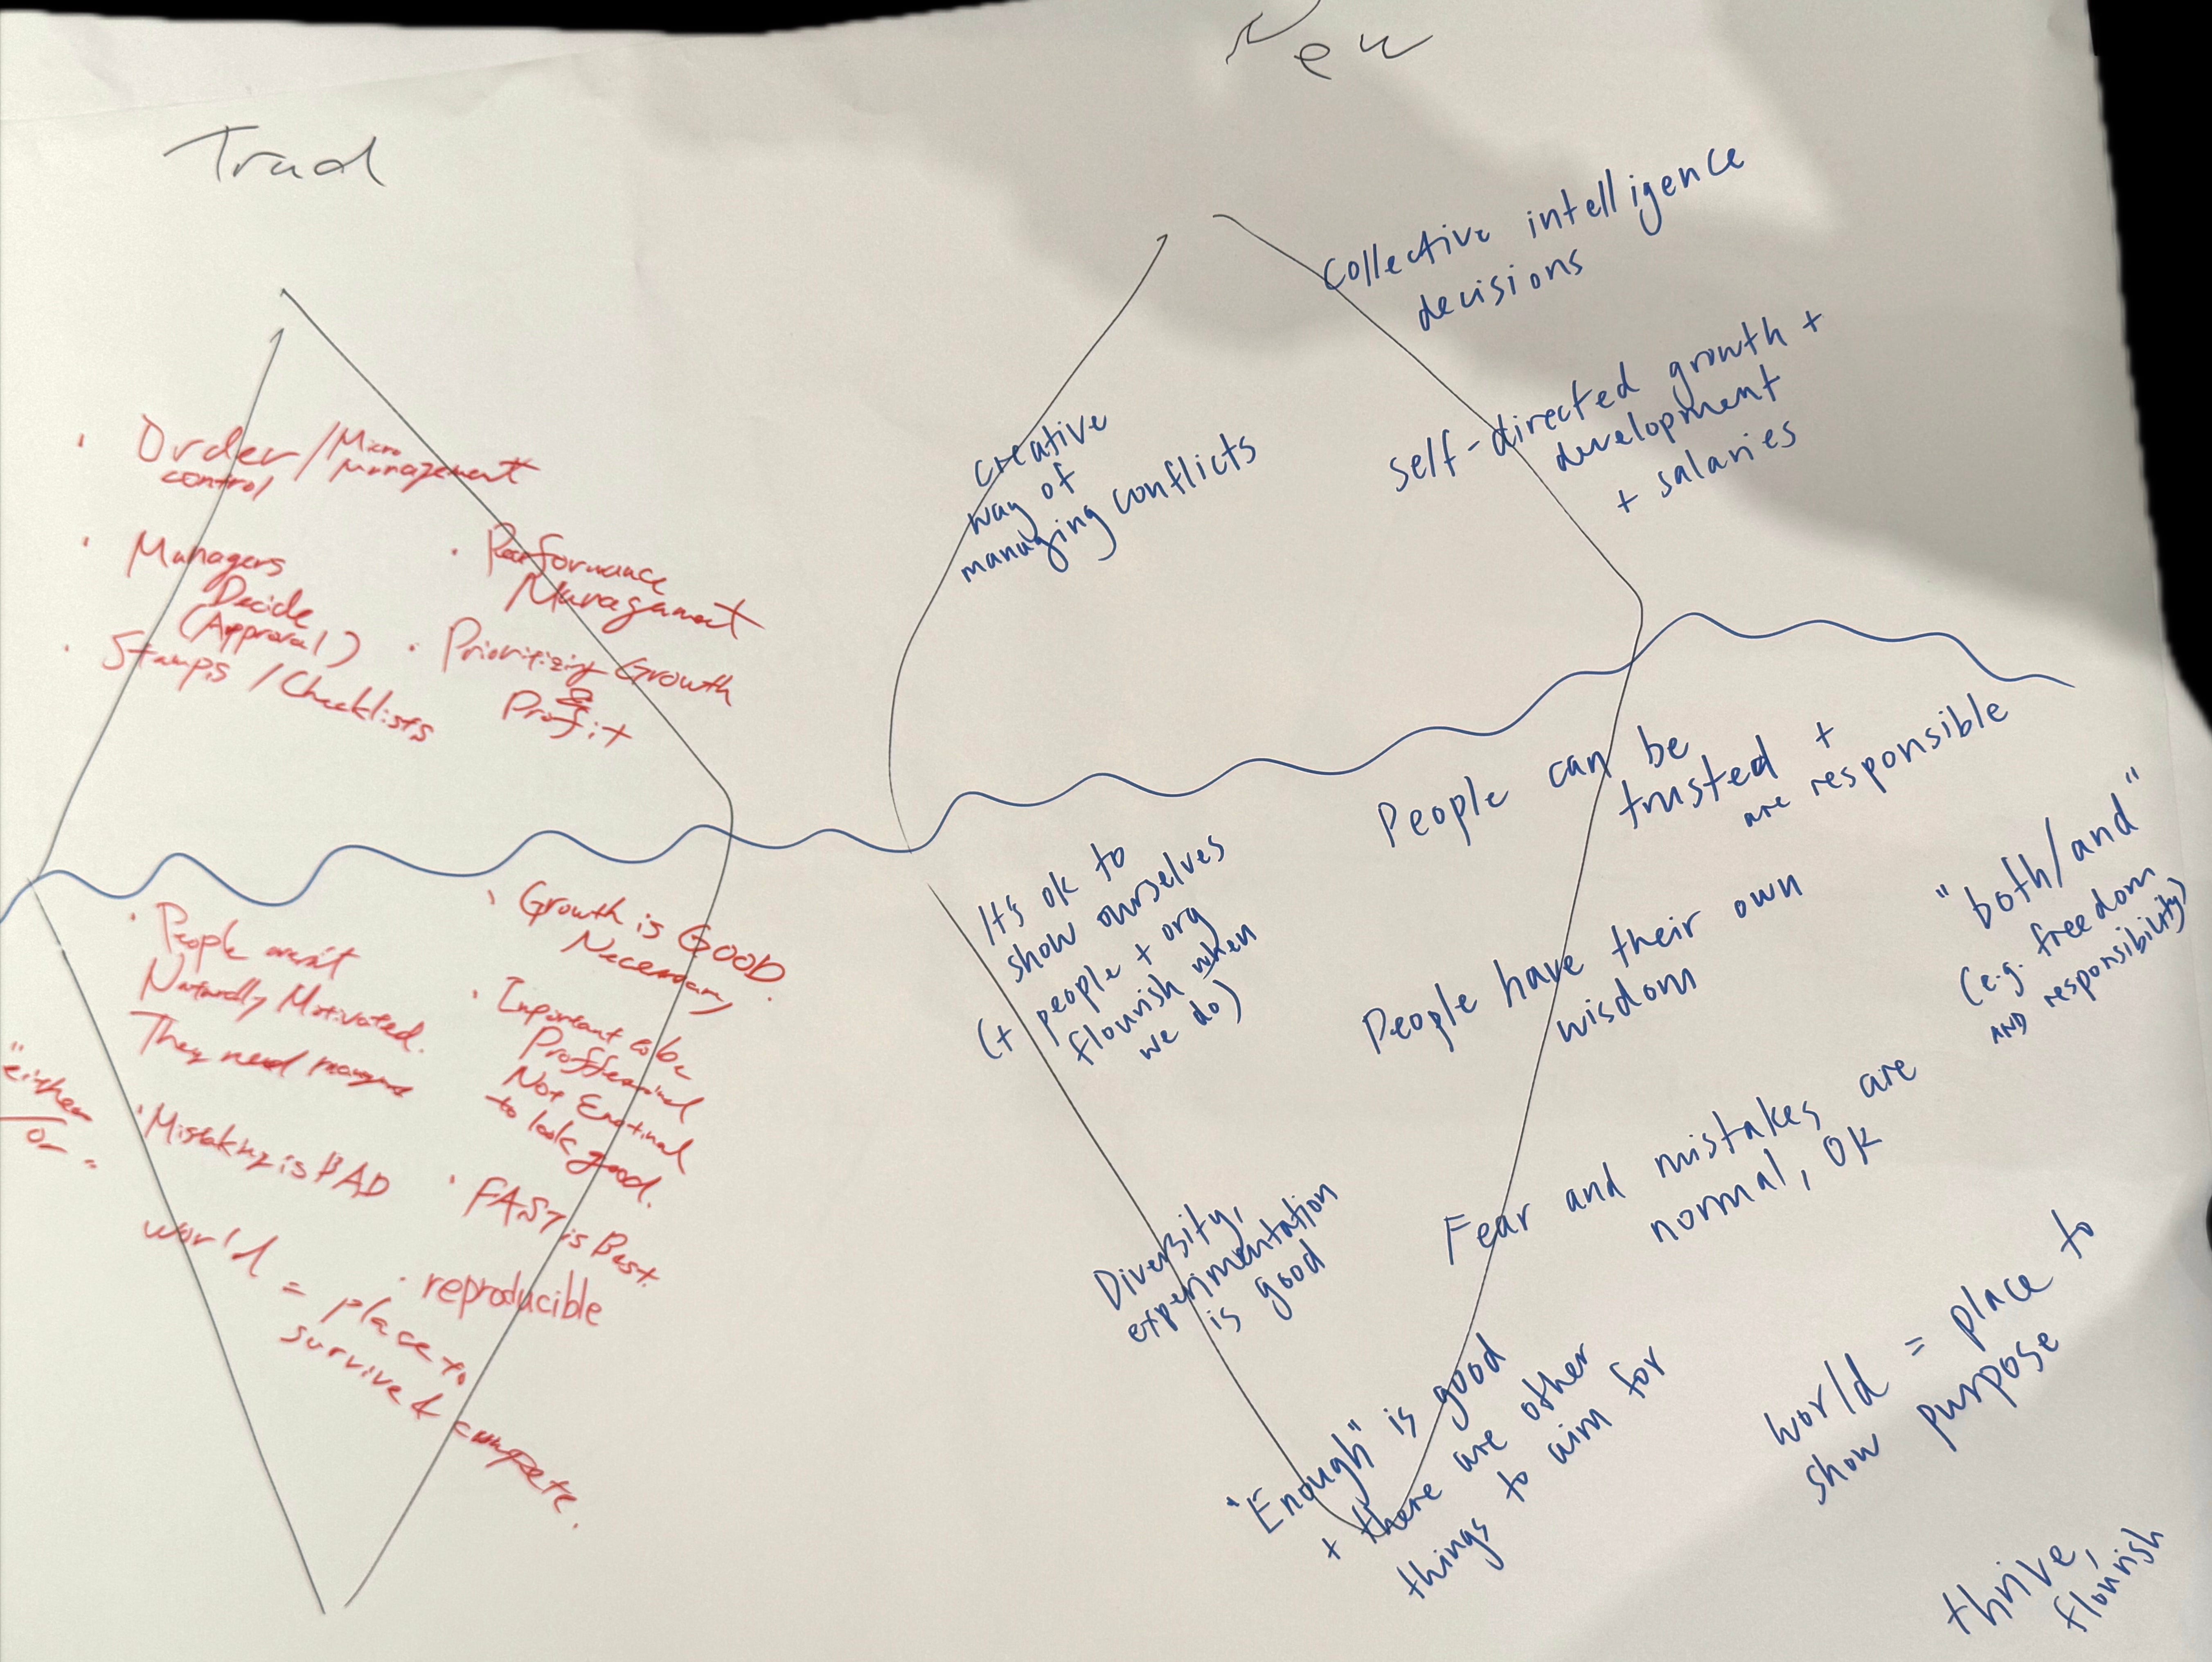 Trad
New
· Order / Micro
control management
· Managers
Decide
(Approval)
· Stamps / Checklists
· Performance
Management
· Prioritizing Growth
&
Profit
· People aren't
Naturally Motivated.
They need
· Mistaking is BAD
world
= place to
survive & compete.
· Growth is GOOD.
Necessary
· Important to be
Not Emotional
to look good.
· FAST is Best.
· reproducible
"either
or"
creative
way of
managing conflicts
collective intelligence
decisions
self-directed growth +
development
+ salaries
It's ok to
show ourselves
(+ people + org
flourish when
we do)
People can be
trusted +
are responsible
People have their own
wisdom
"both/and"
(e.g. freedom
AND responsibility)
Fear and mistakes are
normal, OK
Diversity,
experimentation
is good
"Enough" is good
+ there are other
things to aim for
world = place to
show purpose
thrive,
flourish